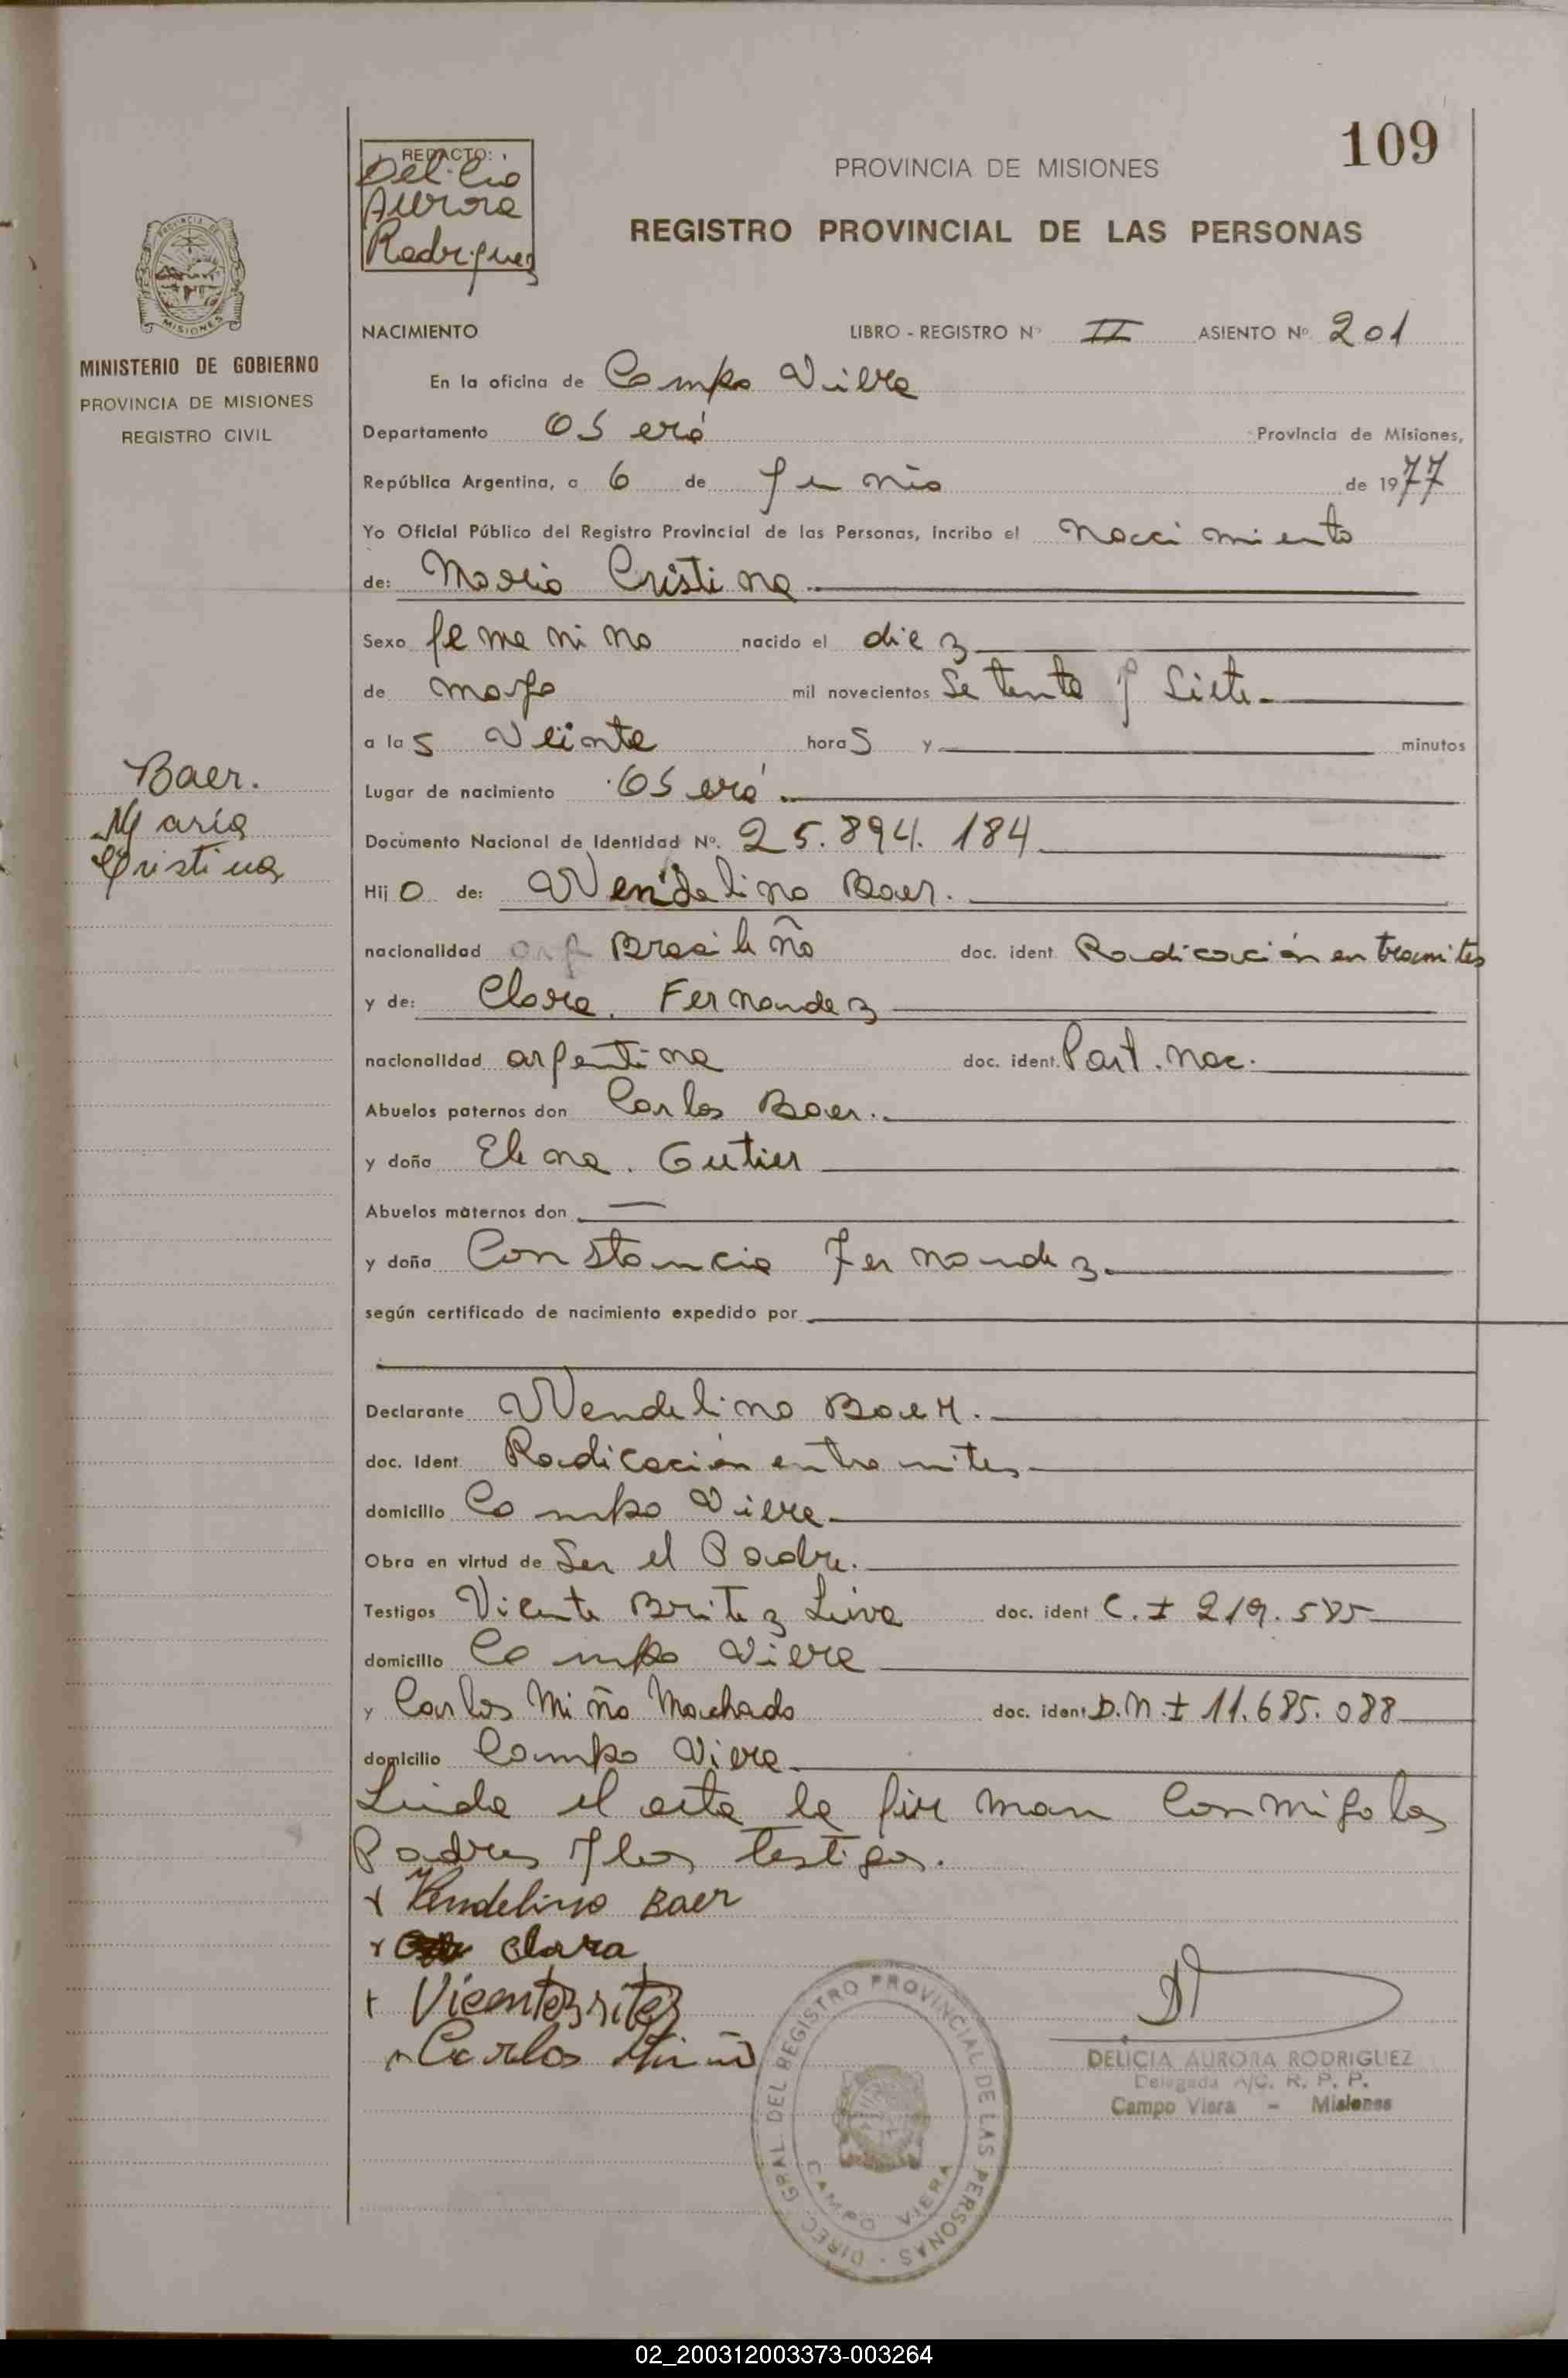 109
REDACTO:
Delicia
Aurora
Rodriguez
PROVINCIA DE MISIONES
REGISTRO PROVINCIAL DE LAS PERSONAS
MISIONES
MINISTERIO DE GOBIERNO
PROVINCIA DE MISIONES
REGISTRO CIVIL
Baer.
María
Cristina
NACIMIENTO LIBRO - REGISTRO Nº II ASIENTO Nº 201
En la oficina de Campo Viera
Departamento Oberá Provincia de Misiones,
República Argentina, a 6 de Junio de 1977
Yo Oficial Público del Registro Provincial de las Personas, incribo el Nacimiento
de: Maria Cristina
Sexo femenino nacido el diez
de mayo mil novecientos Setenta y Siete
a las Veinte horas y minutos
Lugar de nacimiento Oberá
Documento Nacional de Identidad Nº. 25.894.184
Hijo de: Wendelino Baer.
nacionalidad Brasileño doc. ident. Radicación en tramites
y de: Clara Fernandez
nacionalidad argentina doc. ident. Part. nac.
Abuelos paternos don Carlos Baer.
y doña Elena Gutier
Abuelos maternos don —
y doña Constancia Fernandez
según certificado de nacimiento expedido por
Declarante Wendelino Baer.
doc. Ident Radicación en tramites
domicilio Campo Viera
Obra en virtud de Ser el Padre.
Testigos Vicente Britez Leiva doc. ident C. I 219.585
domicilio Campo Viera
y Carlos Miño Machado doc. ident D.N.I 11.685.088
domicilio Campo Viera
Leida el acta la firman conmigo los
Padres y los testigos.
Vendelino Baer
clara
Vicente Britez
Carlos Miño
DIREC. GRAL. DEL REGISTRO PROVINCIAL DE LAS PERSONAS
CAMPO VIERA
DELICIA AURORA RODRIGUEZ
Delegada A/C. R. P. P.
Campo Viera - Misiones
02_200312003373-003264